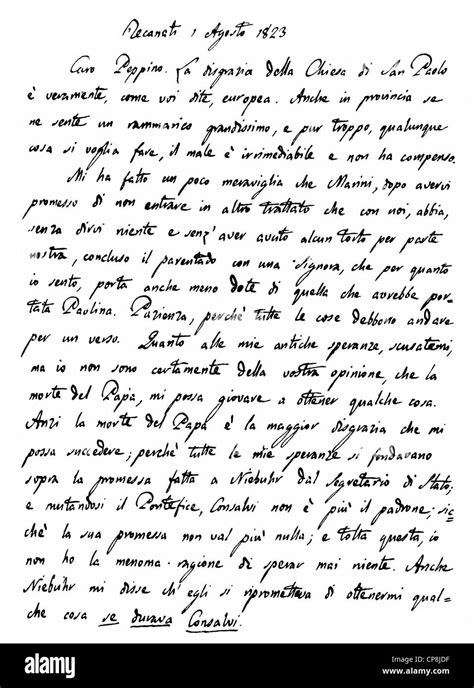 Recanati 1 Agosto 1823
Caro Peppino. La disgrazia della Chiesa di San Paolo
è veramente, come voi dite, europea. Anche in provincia se
ne sente un rammarico grandissimo, e pur troppo, qualunque
cosa si voglia fare, il male è irrimediabile e non ha compenso.
Mi ha fatto un poco meraviglia che Marini, dopo avervi
promesso di non entrare in altro trattato che con noi, abbia,
senza dirvi niente e senz' aver avuto alcun torto per parte
nostra, concluso il parentado con una Signora, che per quanto
io sento, porta anche meno dote di quella che avrebbe por-
tata Paolina. Pazienza, perchè tutte le cose debbono andare
per un verso. Quanto alle mie antiche speranze, scusatemi,
ma io non sono certamente della vostra opinione, che la
morte del Papa, mi possa giovare a ottener qualche cosa.
Anzi la morte del Papa è la maggior disgrazia che mi
possa succedere; perchè tutte le mie speranze si fondavano
sopra la promessa fatta a Niebuhr dal Segretario di Stato;
e mutandosi il Pontefice, Consalvi non è più il padrone; sic-
chè la sua promessa non val più nulla; e tolta questa, io
non ho la menoma ragione di sperar mai niente. Anche
Niebuhr mi disse ch' egli si riprometteva di ottenermi qual-
che cosa se durava Consalvi.
alamy
Image ID: CP8JDF
www.alamy.com